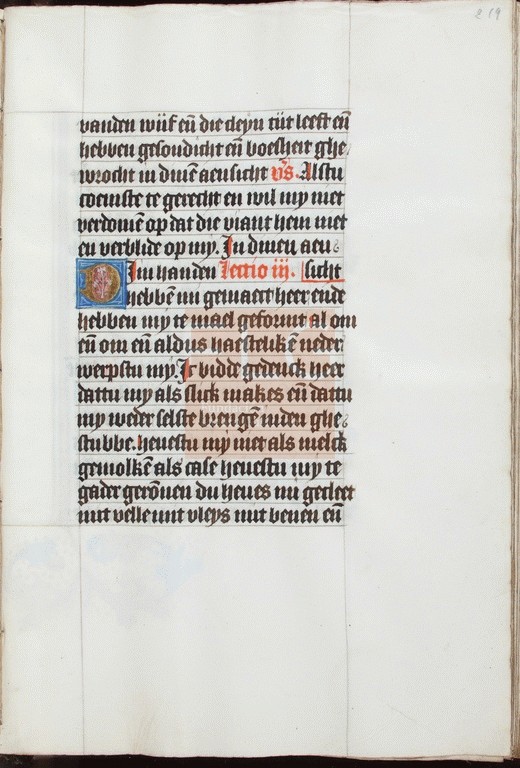 219
vanden wijf eñ die cleyn tijt leeft eñ
hebben gesondicht eñ boesheit ghe
wrocht in dinē aensicht v̄s. Alstu
coemste te gerecht en wil my niet
verdomē op dat die viant hem niet
en verblide op my. In dinen aen
Din handen Lectio iij. sicht
hebbē mi gemaect heer ende
hebben my te mael geformt al om
eñ om eñ aldus haestelikē neder
werpstu my. Ic bidde gedenck heer
dattu my als slick makes eñ dattu
my weder selste brengē inden ghe
stubbe. heuestu my niet als melck
gemolkē als case heuestu my te
gader gerōnen du heues mi gecleet
mit velle mit vleys mit benen eñ